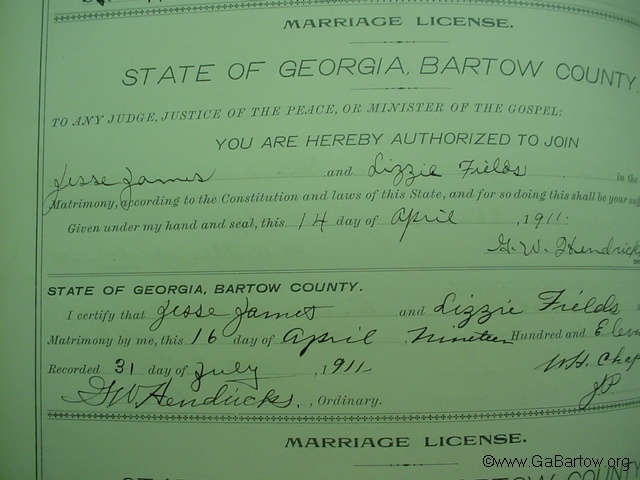 MARRIAGE LICENSE.
STATE OF GEORGIA, BARTOW COUNTY.
TO ANY JUDGE, JUSTICE OF THE PEACE, OR MINISTER OF THE GOSPEL:
YOU ARE HEREBY AUTHORIZED TO JOIN
Jesse James and Lizzie Fields in the
Matrimony, according to the Constitution and laws of this State, and for so doing this shall be your
Given under my hand and seal, this 14 day of April, 1911.
G. W. Hendricks
STATE OF GEORGIA, BARTOW COUNTY.
I certify that Jesse James and Lizzie Fields
Matrimony by me, this 16 day of April, nineteen Hundred and Elev
Recorded 31 day of July, 1911 W.H. Chap
GW Hendricks, , Ordinary. JP
MARRIAGE LICENSE.
©www.GaBartow.org